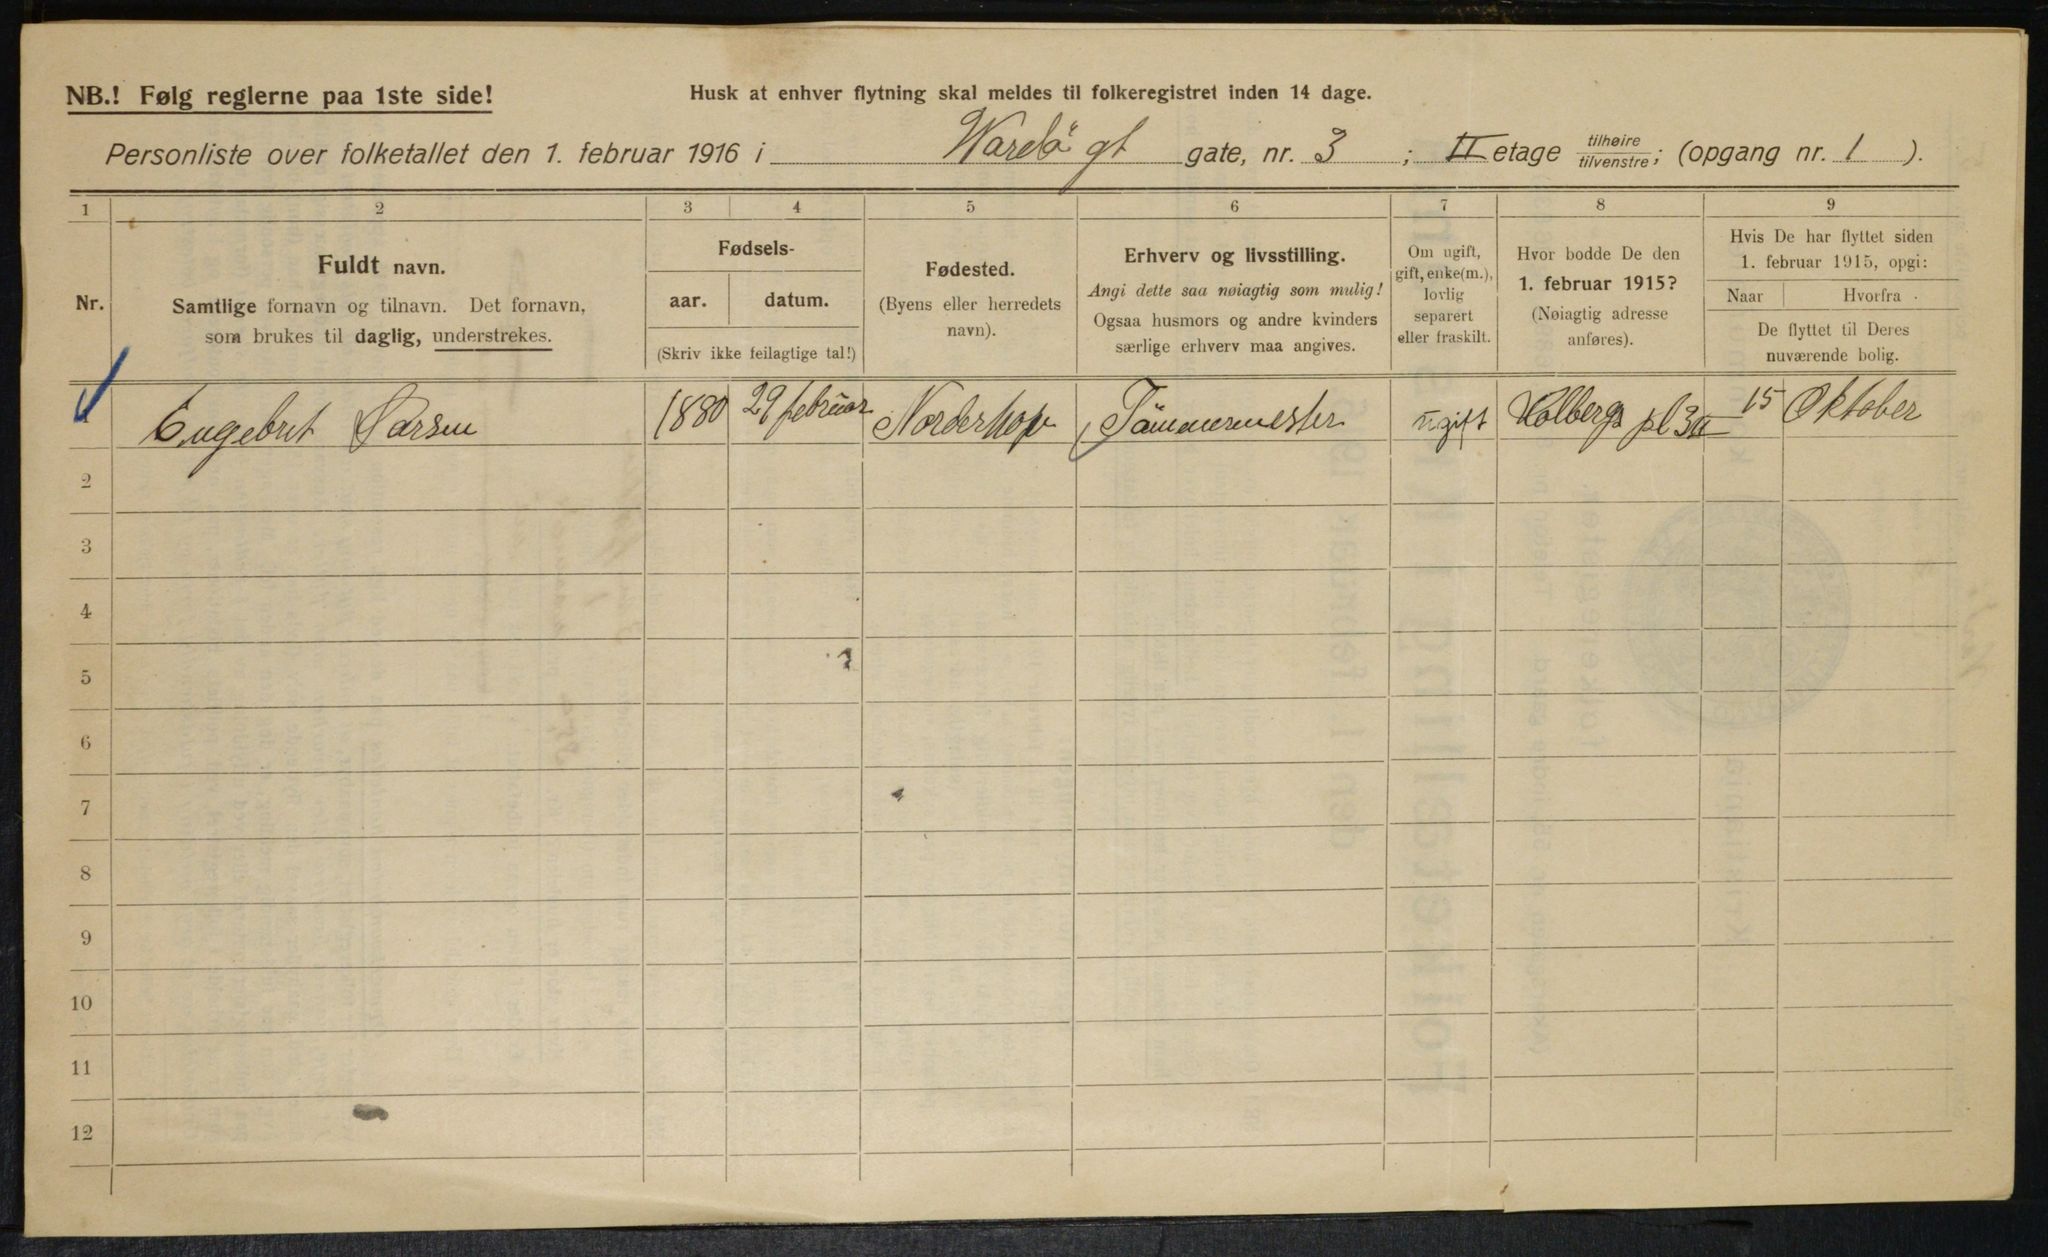 NB.! Følg reglerne paa 1ste side!
Husk at enhver flytning skal meldes til folkeregistret inden 14 dage.
Personliste over folketallet den 1. februar 1916 i Wardö gt gate, nr. 3 ; II etage tilhøire tilvenstre; (opgang nr. 1 ).
1 2 3 4 5 6 7 8 9
Nr.
Fuldt navn.
Samtlige fornavn og tilnavn. Det fornavn,
som brukes til daglig, understrekes.
Fødsels-
aar. datum.
(Skriv ikke feilagtige tal!)
Fødested.
(Byens eller herredets
navn).
Erhverv og livsstilling.
Angi dette saa nøiagtig som mulig!
Ogsaa husmors og andre kvinders
særlige erhverv maa angives.
Om ugift,
gift, enke(m.),
lovlig
separert
eller fraskilt.
Hvor bodde De den
1. februar 1915?
(Nøiagtig adresse
anføres).
Hvis De har flyttet siden
1. februar 1915, opgi:
Naar Hvorfra
De flyttet til Deres
nuværende bolig.
1 Engebret Larsen 1880 29 februar Norderhov Tömmermester ugift Holbergs pl 3 II 15 Oktober
2
3
4
5
6
7
8
9
10
11
12